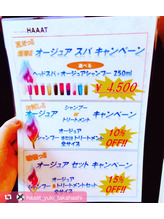 HAAAT
オージュア スパ キャンペーン
選べる
ヘッドスパ+オージュアシャンプー 250ml
¥4,500
オージュア キャンペーン
オージュア
シャンプー
or
トリートメント
全サイズ
10%
OFF!!
オージュア セット キャンペーン
オージュア
シャンプー&トリートメントセット
全サイズ
15%
OFF!!
haaat_yuki_takahashi